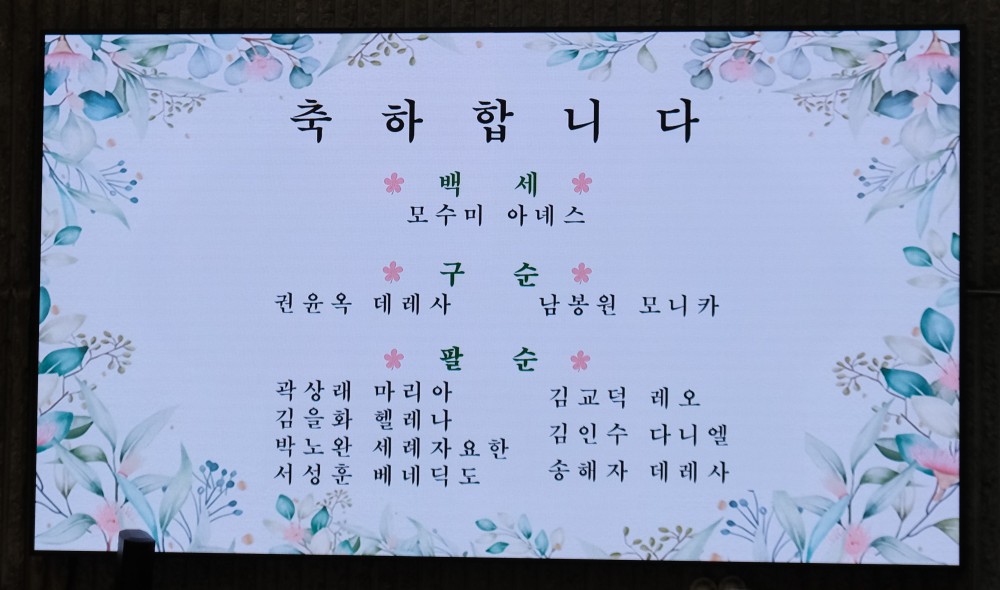 축 하 합 니 다
백 세
모수미 아녜스
구 순
권윤옥 데레사 남봉원 모니카
팔 순
곽상래 마리아 김교덕 레오
김을화 헬레나 김인수 다니엘
박노완 세례자요한 송해자 데레사
서성훈 베네딕도